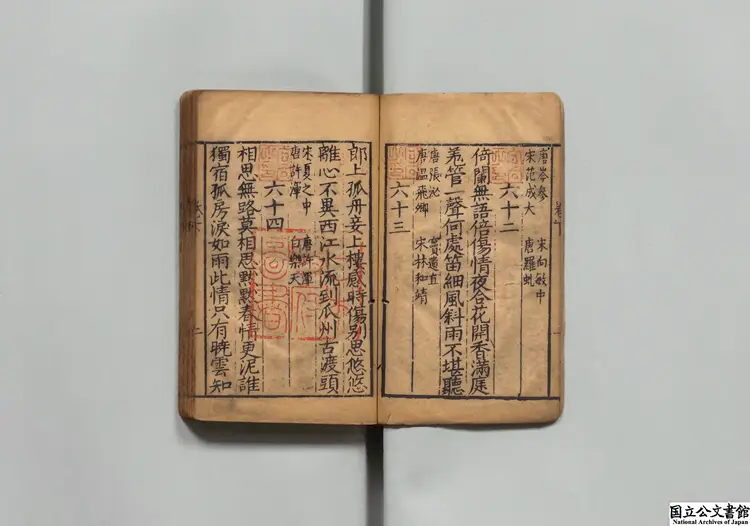 唐岑參 宋向敏中
宋范成大 唐羅虬
六十二
倚闌無語倍傷情夜合花開香滿庭
管一聲何處笛細風斜雨不堪聽
唐張泌
唐溫飛卿 宋林和靖
六十三
郎上孤舟妾上樓感時傷別思悠悠
離心不異西江水流到瓜州古渡頭
宋夏之中 唐許渾
唐許渾 白樂天
六十四
相思無路莫相思默默春情更泥誰
獨宿孤房淚如雨此情只有曉雲知
国立公文書館
National Archives of Japan